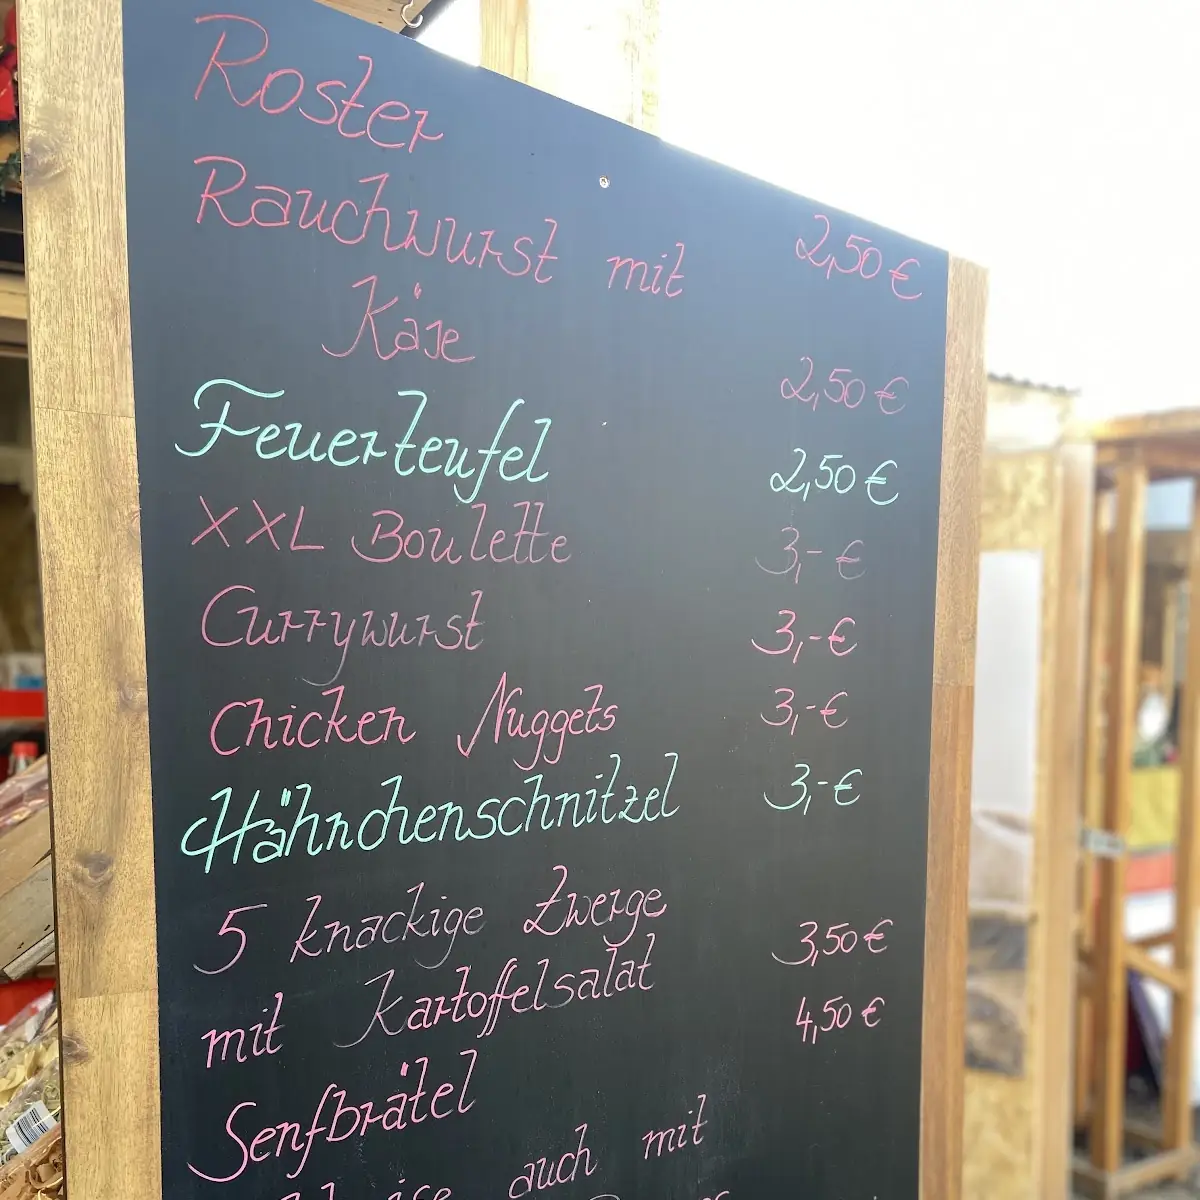 Roster 2,50 €
Rauchwurst mit
Käse 2,50 €
Feuerteufel 2,50 €
XXL Boulette 3,- €
Currywurst 3,- €
Chicken Nuggets 3,- €
Hähnchenschnitzel 3,- €
5 knackige Zwerge
mit Kartoffelsalat 3,50 €
Senfbrätel 4,50 €
auch mit